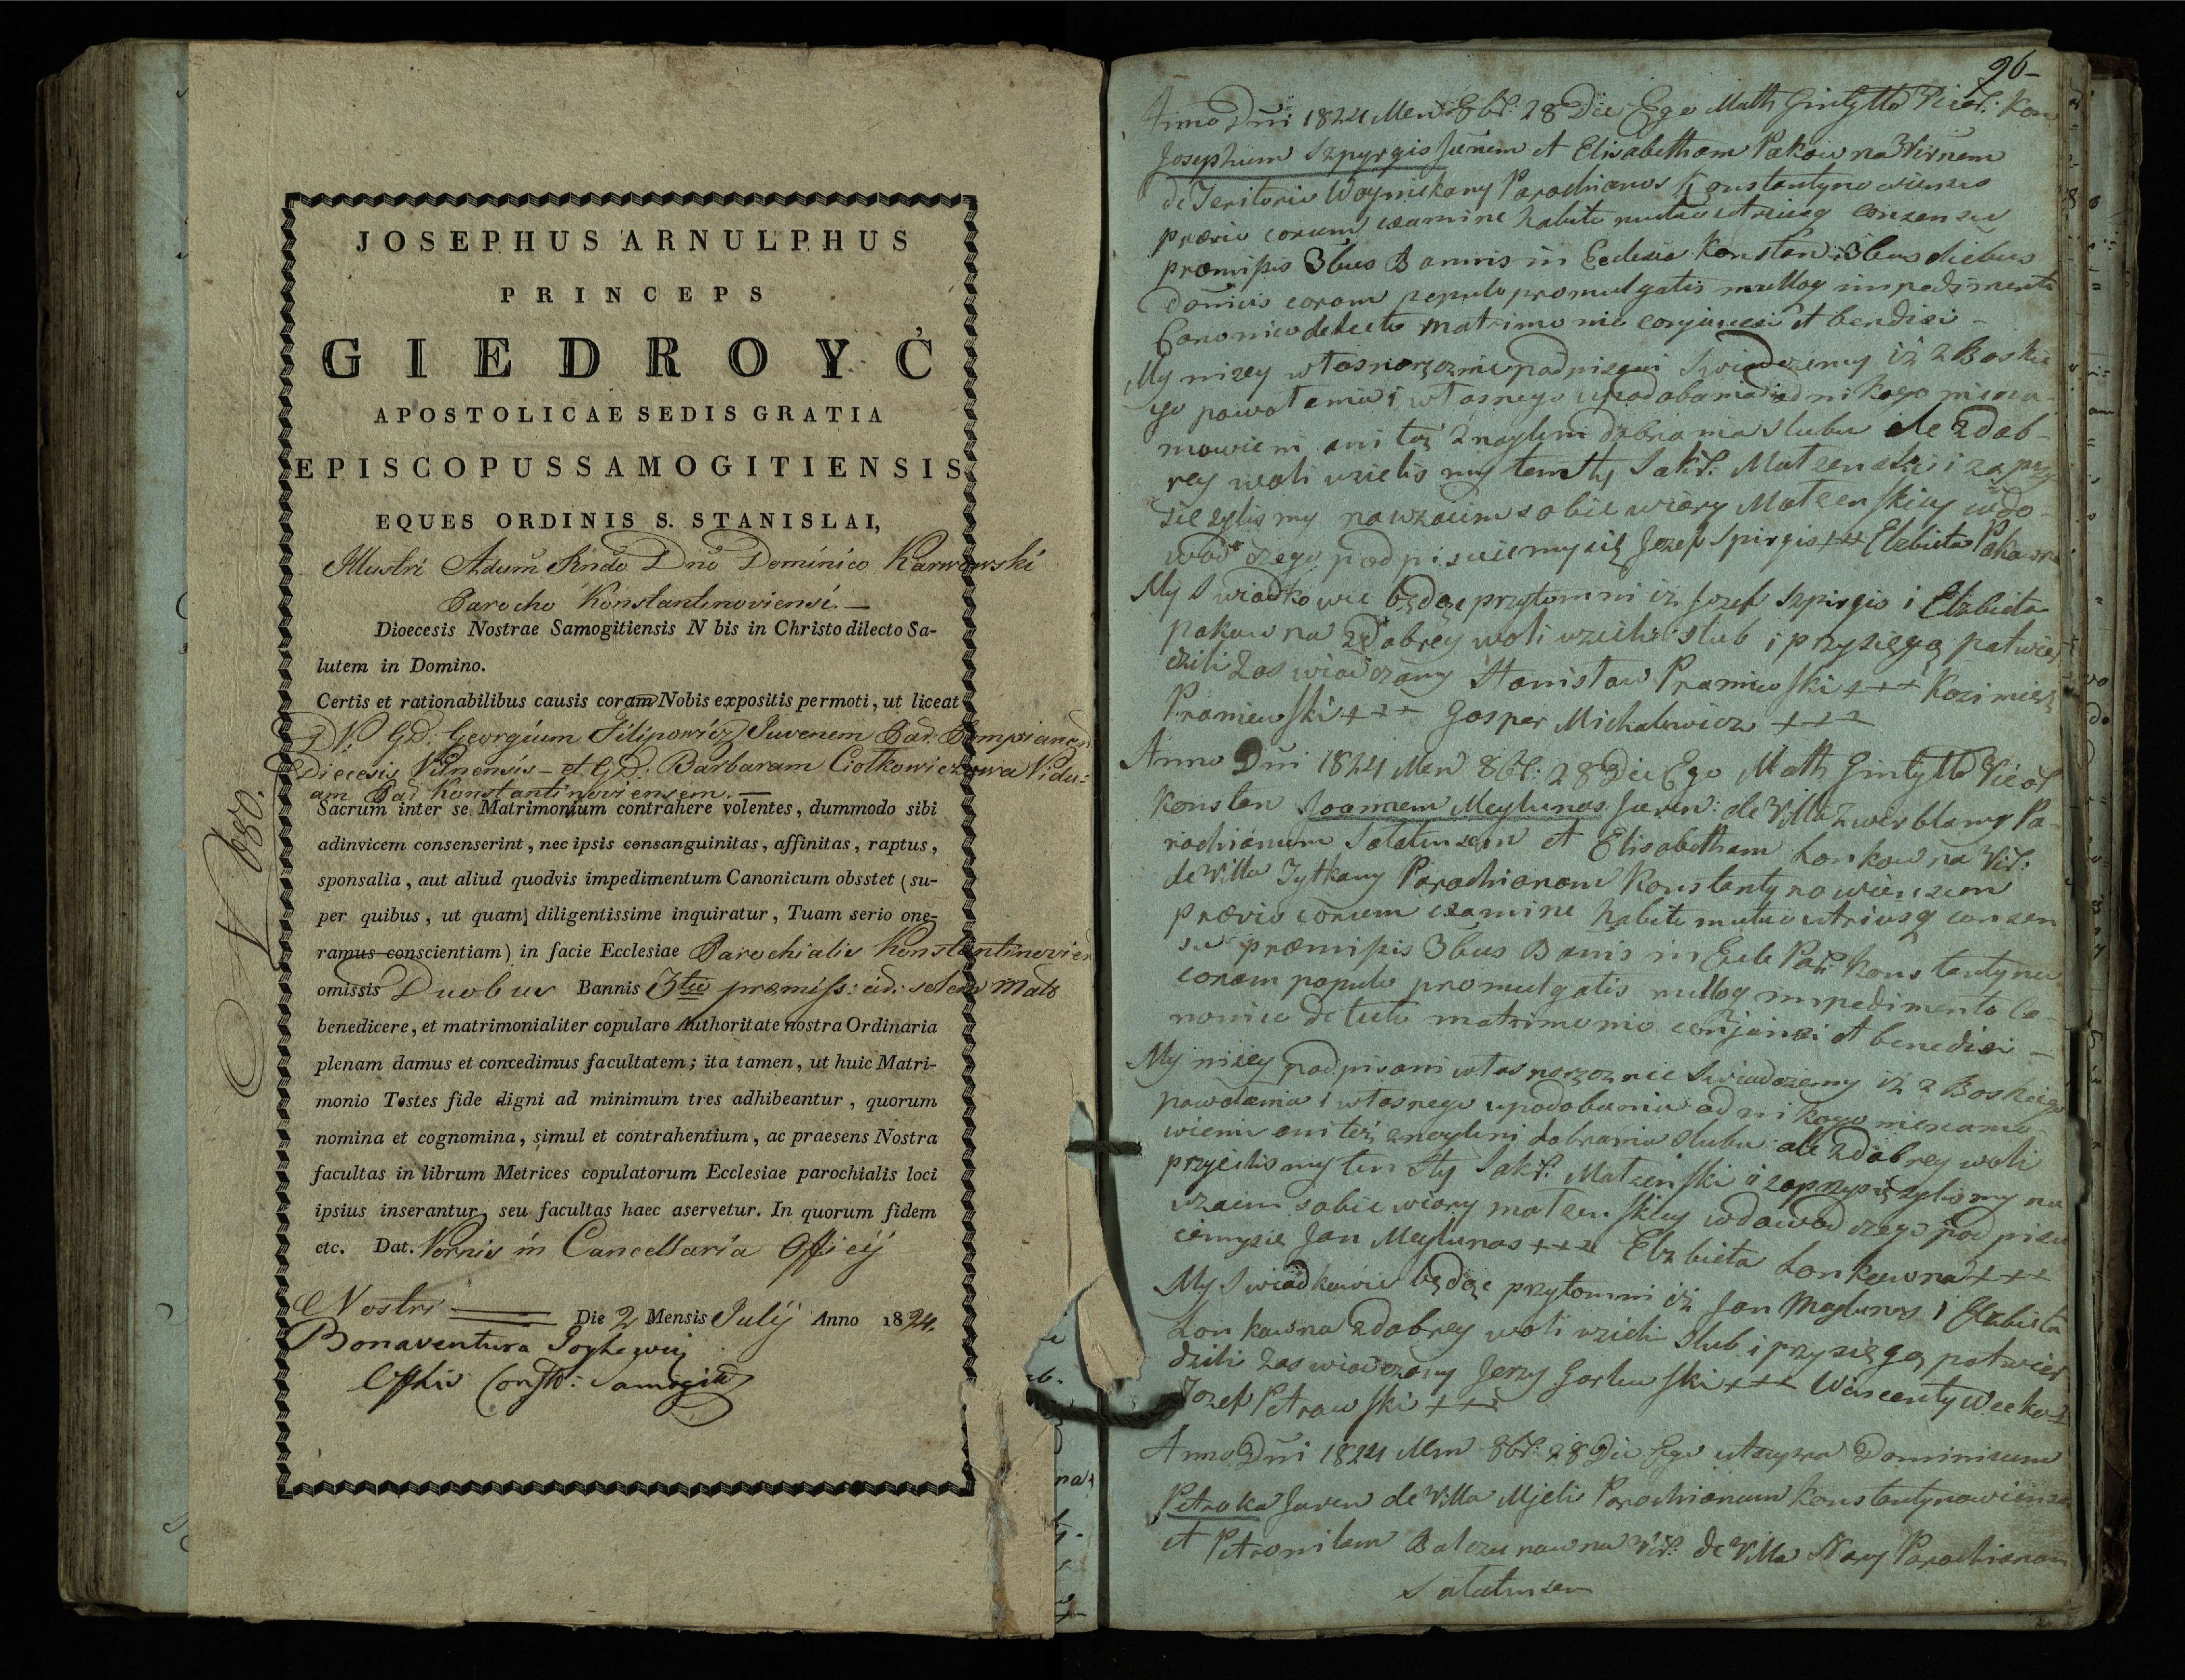 JOSEPHUS ARNULPHUS
PRINCEPS
GIEDROYĆ
APOSTOLICAE SEDIS GRATIA
EPISCOPUS SAMOGITIENSIS
EQUES ORDINIS S. STANISLAI,
Illustri Adum Rndo Dno Dominico Karwowski
Parocho Konstantinoviensi. —
Dioecesis Nostrae Samogitiensis N bis in Christo dilecto Sa-
lutem in Domino.
Certis et rationabilibus causis coram Nobis expositis permoti, ut liceat
GD: Georgium Filipowicz Juvenem Par.
Diecesis Vilnensis – et GD: Barbaram Ciotkowiczowa Vidu=
am Par Konstantinoviensem. —
Sacrum inter se Matrimonium contrahere volentes, dummodo sibi
adinvicem consenserint, nec ipsis consanguinitas, affinitas, raptus,
sponsalia, aut aliud quodvis impedimentum Canonicum obsstet (su-
per quibus, ut quam diligentissime inquiratur, Tuam serio one-
ramus conscientiam) in facie Ecclesiae Parochialis Konstantinovien
omissis Duobus Bannis 3tio praemiss:
benedicere, et matrimonialiter copulare Authoritate nostra Ordinaria
plenam damus et concedimus facultatem; ita tamen, ut huic Matri-
monio Testes fide digni ad minimum tres adhibeantur, quorum
nomina et cognomina, simul et contrahentium, ac praesens Nostra
facultas in librum Metrices copulatorum Ecclesiae parochialis loci
ipsius inserantur, seu facultas haec aservetur. In quorum fidem
etc. Dat. Vorniis in Cancellaria Officij
Nostri Die 2 Mensis Julij Anno 1824.
Bonaventura
Samogit
N 680.
96–
Anno Dni 1824 Men 8br: 28 Die Ego Math Gintyllo Vicar: Kon
Josephum Szpyrgis Juvenem et Elisabetham Pakowna Virnem
de Teritorio Woyniskany Parochianos Konstantynowienses
praevio eorum examine habito mutuo utriusq consensu
praemissis 3bus Bannis in Eclesia Konstan: 3bus diebus
Domicis coram populo promulgatis nulloq impedimento
Canonico detecto matrimonio conjunxi et bendixi –
My nizey własnoręcznie podpisani Swiadczemy iż z Boskie
go powołania i własnego upodobania od nikogo niena-
mowieni ani też znagleni do brania slubu ale z dob-
rey woli wzielismy ten Sty Sakr: Małzenski i zaprzy
sięzylismy nawzaiem sobie wiary Małzenskiey w do-
wod czego podpisuiemy się Jozef Spirgis +++ Elzbieta Pakowna
My Swiadkowie będąc przytomni iż Jozef Szpirgis i Elzbieta
Pakowna z Dobrey woli wzieli slub i przysięgą potwier
dzili Zaswiadczamy Stanisław Praniewski +++ Kazimierz
Praniewski +++ Gasper Michalewicz +++
Anno Dni 1824 Men 8br: 28 Die Ego Math Gintyllo Vicar
Konstan Joannem Meylunas Juven: de Villa Zwirblany Pa-
rochianum Salatensem et Elisabetham Lonkowna Vir:
de Villa Jytkany Parochianam Konstantynowiensem
praevio eorum examine habito mutuo utriusq consen
su praemissis 3bus Banis in Ecle Par: Konstantyno
coram populo promulgatis nulloq impedimento Ca-
nonico detecto matrimonio conjunxi et benedixi –
My nizey podpisani własnoręcznie Swiadczemy iż z Boskiego
powołania i własnego upodobania od nikogo nienamo
wieni ani też znagleni do brania slubu ale z dobrey woli
przyielismy ten Sty Sakr: Małzenski i zaprzysięzylismy na
wzaiem sobie wiary małzenskiey w dowod czego podpisu
iemy się Jan Meylunas +++ Elzbieta Lonkowna +++
My Swiadkowie będąc przytomni iż Jan Maylunas i Elzbieta
Lonkowna z dobrey woli wzieli Slub i przysięgą potwier
dzili Zaswiadczamy Jerzy Gorlewski +++ Wincenty
Jozef Petrowski +++
Anno Dni 1824 Men 8br: 28 Die Ego ut supra Dominicum
Petroka Juven de Villa Mjeli Parochianum Konstantynowiensem
et Petronilam Balczunowna Vir: de Villa Nary Parochianam
Salatensem